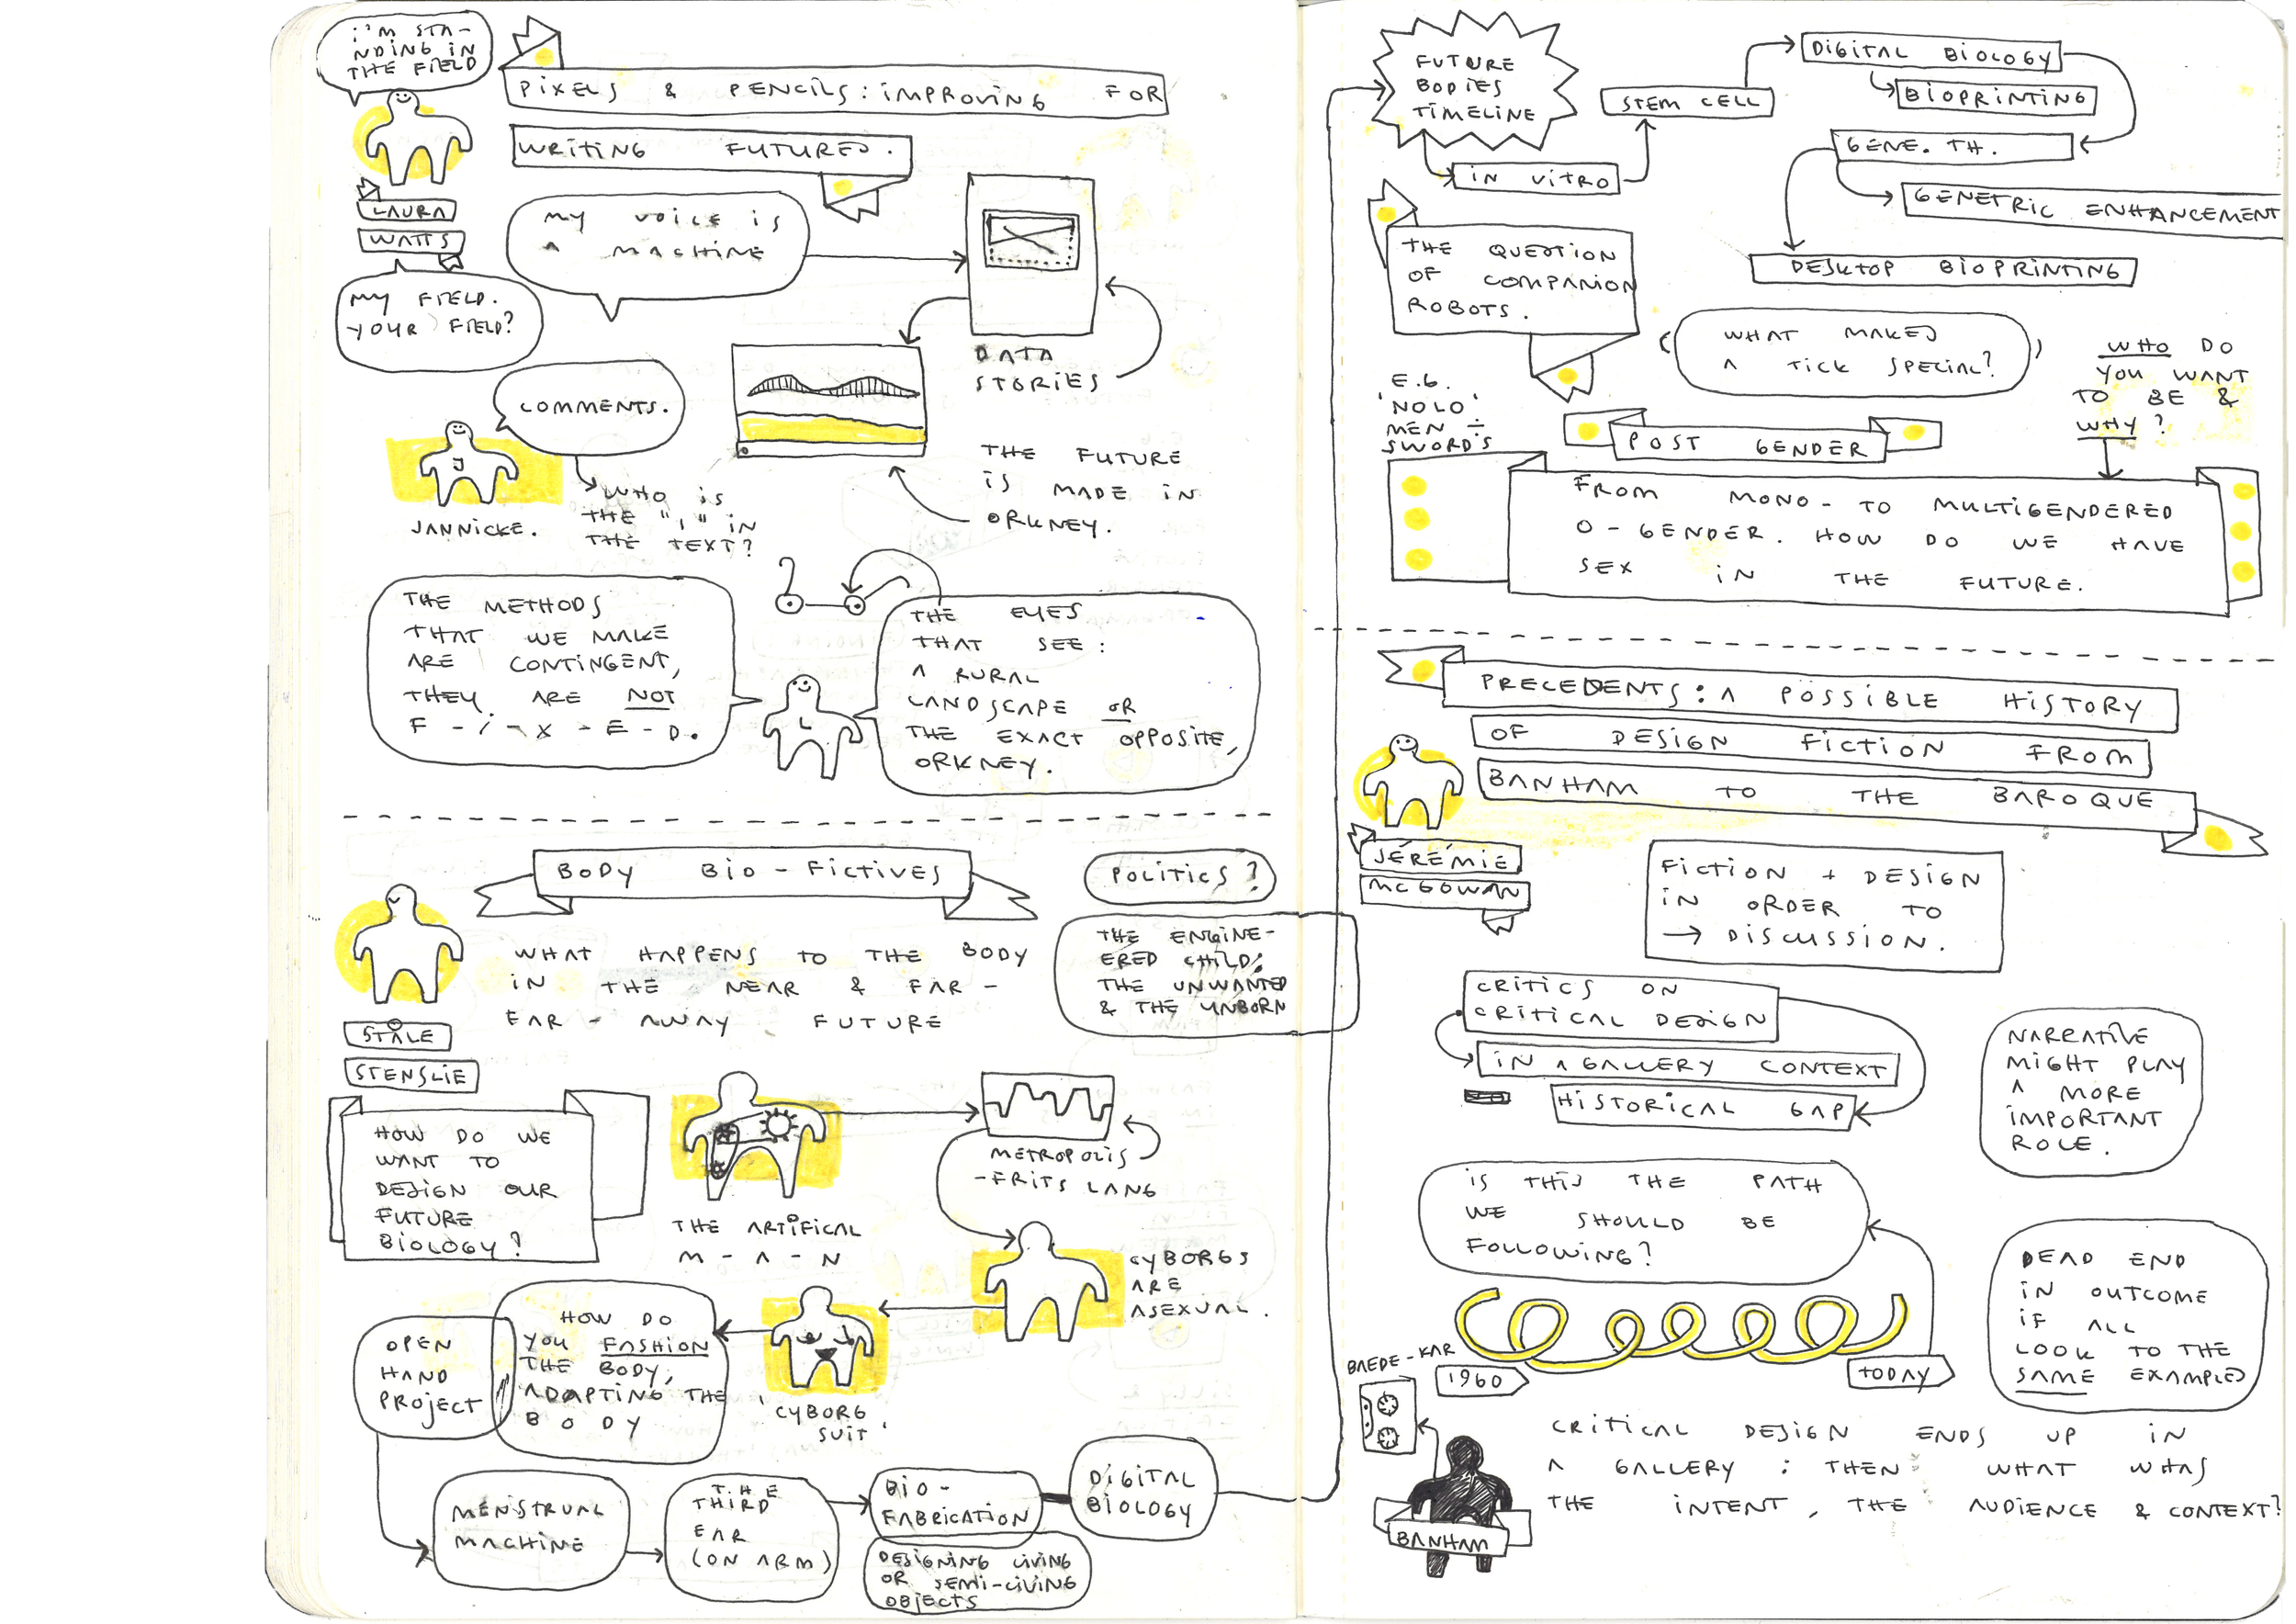 I'M STA-
NDING IN
THE FIELD
PIXELS & PENCILS: IMPROVING FOR
WRITING FUTURES.
LAURA
WATTS
MY FIELD.
YOUR FIELD?
MY VOICE IS
A MACHINE
DATA
STORIES
COMMENTS.
J
JANNICKE.
WHO IS
THE "I" IN
THE TEXT?
THE FUTURE
IS MADE IN
ORKNEY.
THE METHODS
THAT WE MAKE
ARE CONTINGENT,
THEY ARE NOT
F - I - X - E - D.
L
THE EYES
THAT SEE:
A RURAL
LANDSCAPE OR
THE EXACT OPPOSITE,
ORKNEY.
BODY BIO - FICTIVES
POLITICS?
STÅLE
STENSLIE
WHAT HAPPENS TO THE BODY
IN THE NEAR & FAR -
FAR - AWAY FUTURE
THE ENGINE-
ERED CHILD:
THE UNWANTED
& THE UNBORN
HOW DO WE
WANT TO
DESIGN OUR
FUTURE
BIOLOGY?
THE ARTIFICAL
M - A - N
METROPOLIS
- FRITS LANG
CYBORGS
ARE
ASEXUAL.
'CYBORG
SUIT'
HOW DO
YOU FASHION
THE BODY,
ADAPTING THE
BODY
OPEN
HAND
PROJECT
MENSTRUAL
MACHINE
THE
THIRD
EAR
(ON ARM)
BIO -
FABRICATION
DESIGNING LIVING
OR SEMI-LIVING
OBJECTS
DIGITAL
BIOLOGY
FUTURE
BODIES
TIMELINE
IN VITRO
STEM CELL
DIGITAL BIOLOGY
BIOPRINTING
GENE. TH.
GENETRIC ENHANCEMENT
DESKTOP BIOPRINTING
THE QUESTION
OF COMPANION
ROBOTS.
(WHAT MAKES
A TICK SPECIAL?)
WHO DO
YOU WANT
TO BE &
WHY?
E.G.
'NOLO'
MEN ÷
SWORD'S
POST GENDER
FROM MONO - TO MULTIGENDERED
O - GENDER. HOW DO WE HAVE
SEX IN THE FUTURE.
PRECEDENTS: A POSSIBLE HISTORY
OF DESIGN FICTION FROM
BANHAM TO THE BAROQUE
JÉRÉMIE
MCGOWAN
FICTION + DESIGN
IN ORDER TO
→ DISCUSSION.
CRITICS ON
CRITICAL DESIGN
IN A GALLERY CONTEXT
HISTORICAL GAP
NARRATIVE
MIGHT PLAY
A MORE
IMPORTANT
ROLE.
IS THIS THE PATH
WE SHOULD BE
FOLLOWING?
BAEDE-KAR
1960
TODAY
DEAD END
IN OUTCOME
IF ALL
LOOK TO THE
SAME EXAMPLES
BANHAM
CRITICAL DESIGN ENDS UP IN
A GALLERY: THEN WHAT WHAS
THE INTENT, THE AUDIENCE & CONTEXT?